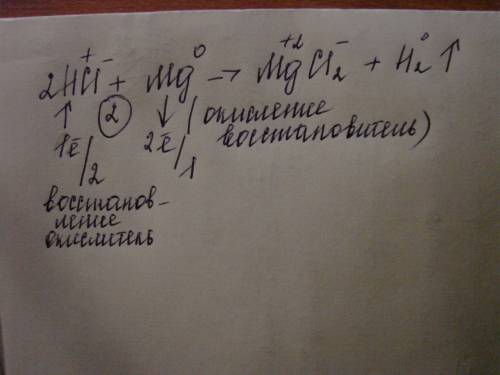 2HCl + Mg⁰ → Mg⁺²Cl₂⁻ + H₂⁰ ↑
↑ ② ↓ / окисление
1ē / 2ē / восстановитель)
2 1
восстанов-
ление
окислитель